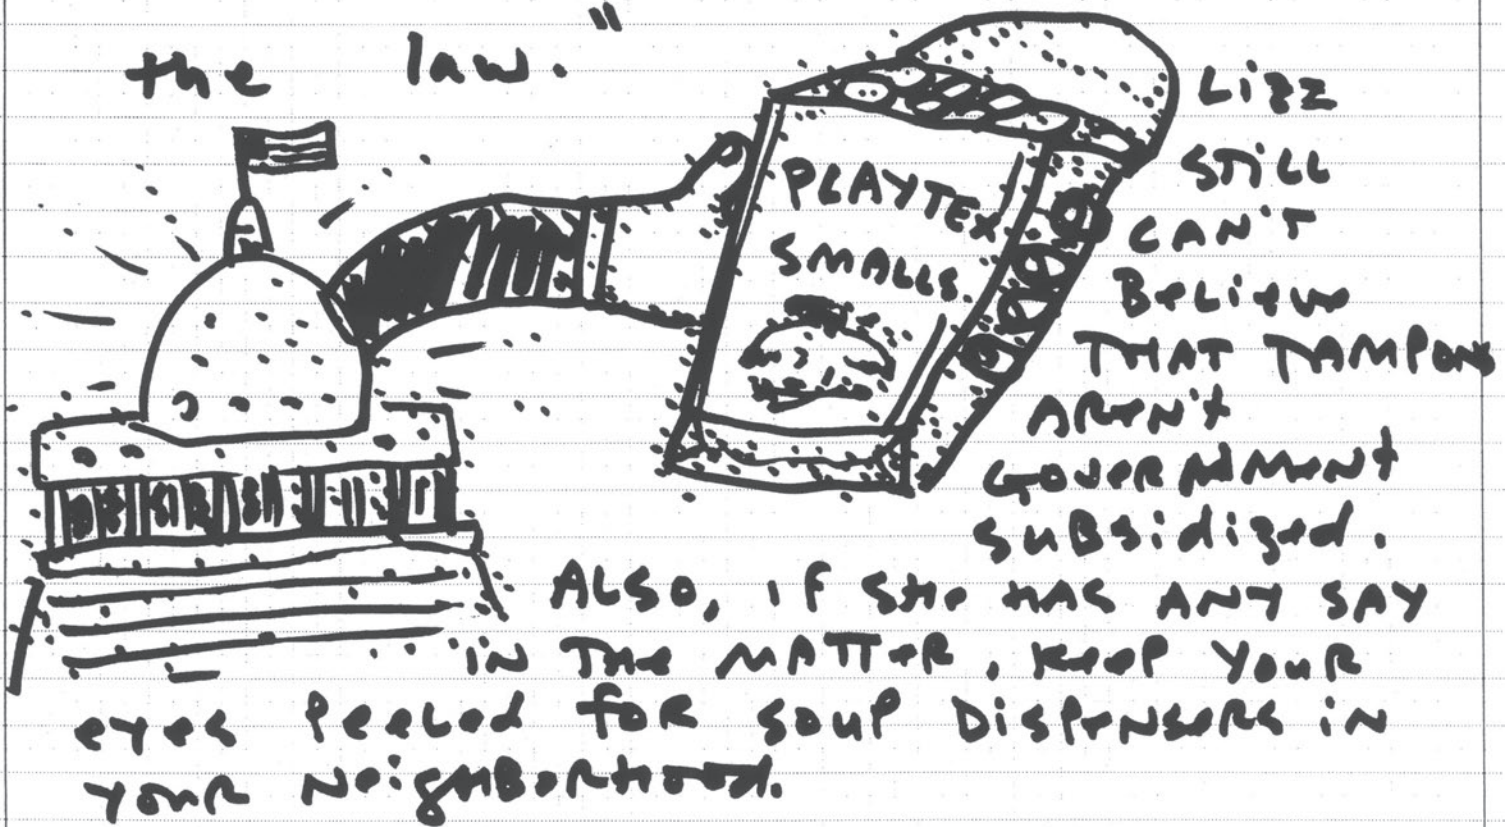 the law."
PLAYTEX
SMALLS.
LIZZ
STILL
CAN'T
BELIEVE
THAT TAMPONS
AREN'T
GOVERNMENT
SUBSIDIZED.
ALSO, IF SHE HAS ANY SAY
IN THE MATTER, KEEP YOUR
EYES PEELED FOR SOUP DISPENSERS IN
YOUR NEIGHBORHOOD.